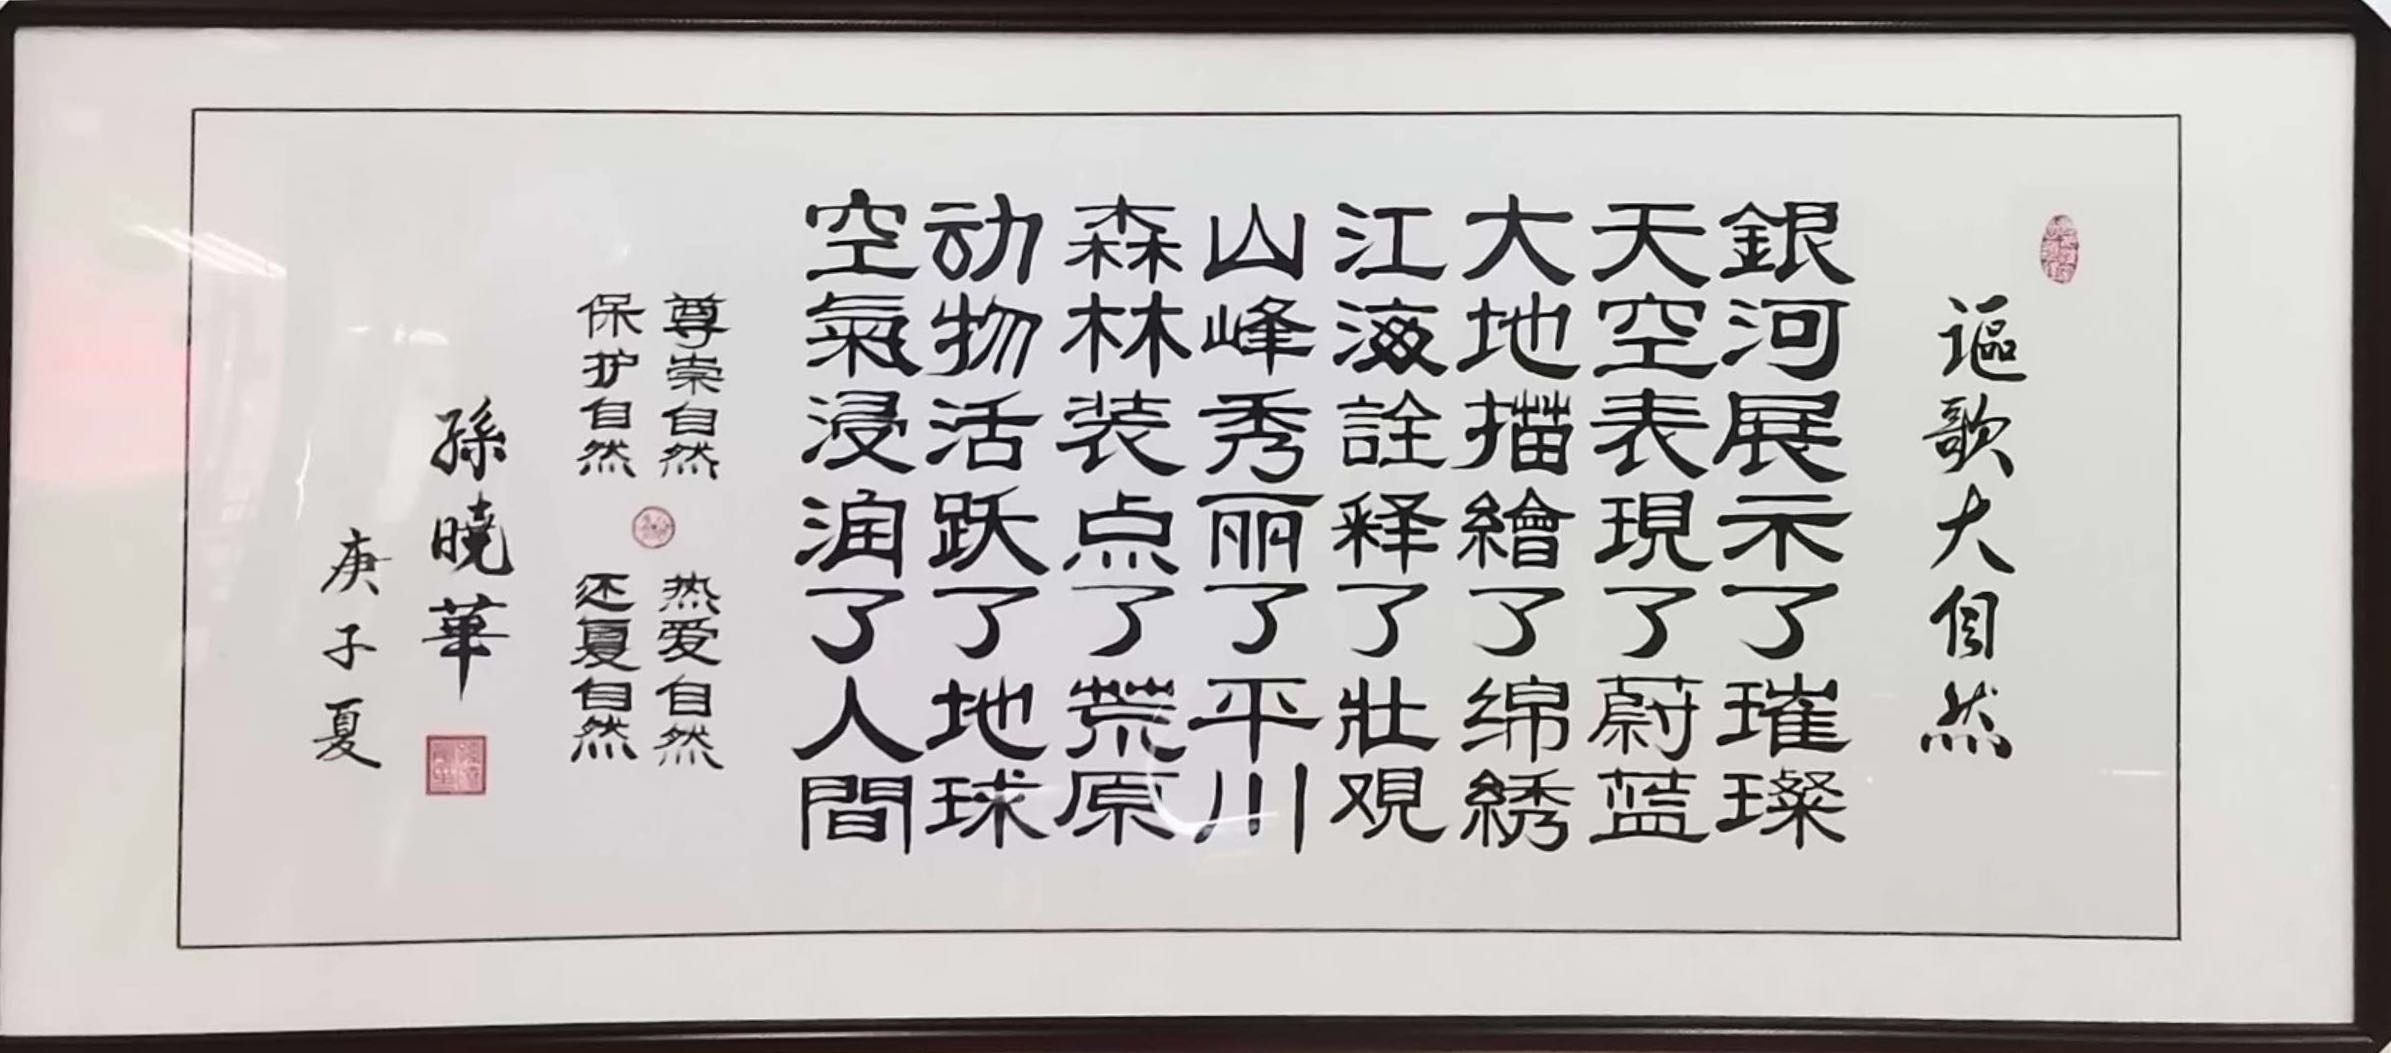 謳歌大自然
銀河展示了璀璨
天空表現了蔚蓝
大地描繪了绵綉
江海詮释了壯观
山峰秀丽了平川
森林装点了荒原
动物活跃了地球
空氣浸润了人間
尊崇自然 热爱自然
保护自然 还夏自然
孫曉華
庚子夏